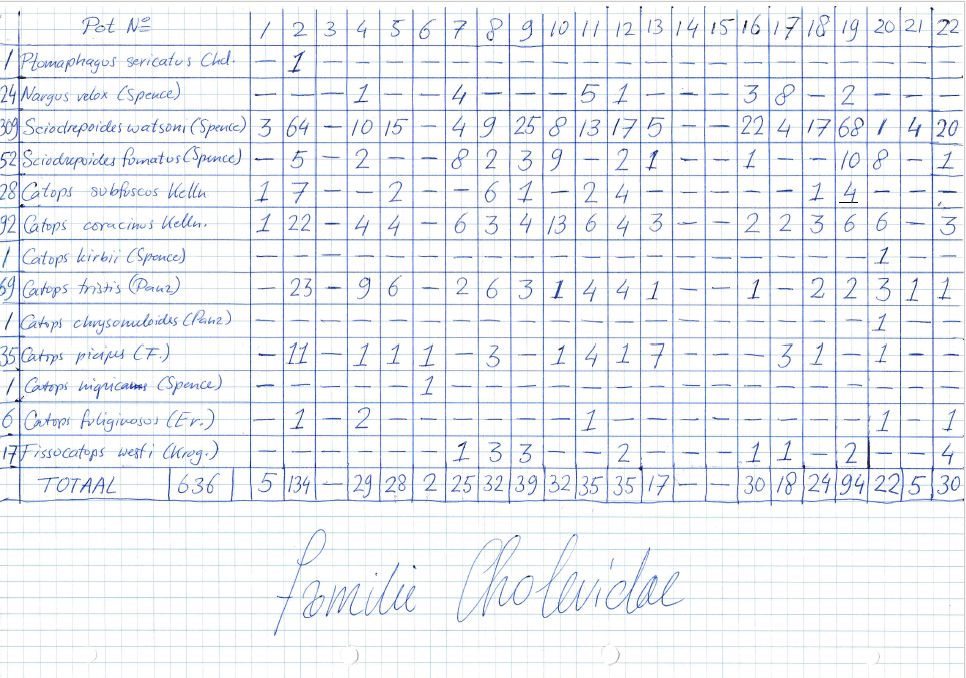 Pot Nº 1 2 3 4 5 6 7 8 9 10 11 12 13 14 15 16 17 18 19 20 21 22
1 Ptomaphagus sericatus Chd. — 1 — — — — — — — — — — — — — — — — — — — —
24 Nargus velox (Spence) — — — 1 — — 4 — — — 5 1 — — — 3 8 — 2 — — —
309 Sciodrepoides watsoni (Spence) 3 64 — 10 15 — 4 9 25 8 13 17 5 — — 22 4 17 68 1 4 20
52 Sciodrepoides fumatus (Spence) — 5 — 2 — — 8 2 3 9 — 2 1 — — 1 — — 10 8 — 1
28 Catops subfuscus Kelln 1 7 — — 2 — — 6 1 — 2 4 — — — — — 1 4 — — —
92 Catops coracinus Kelln. 1 22 — 4 4 — 6 3 4 13 6 4 3 — — 2 2 3 6 6 — 3
1 Catops kirbii (Spence) — — — — — — — — — — — — — — — — — — — 1 — —
69 Catops tristis (Panz) — 23 — 9 6 — 2 6 3 1 4 4 1 — — 1 — 2 2 3 1 1
1 Catops chrysomeloides (Panz) — — — — — — — — — — — — — — — — — — — 1 — —
35 Catops picipes (F.) — 11 — 1 1 1 — 3 — 1 4 1 7 — — — 3 1 — 1 — —
1 Catops nigricans (Spence) — — — — — 1 — — — — — — — — — — — — — — — —
6 Catops fuliginosus (Er.) — 1 — 2 — — — — — — 1 — — — — — — — — 1 — 1
17 Fissocatops westi (Krog.) — — — — — — 1 3 3 — — 2 — — — 1 1 — 2 — — 4
TOTAAL 636 5 134 — 29 28 2 25 32 39 32 35 35 17 — — 30 18 24 94 22 5 30
Familie Cholevidae